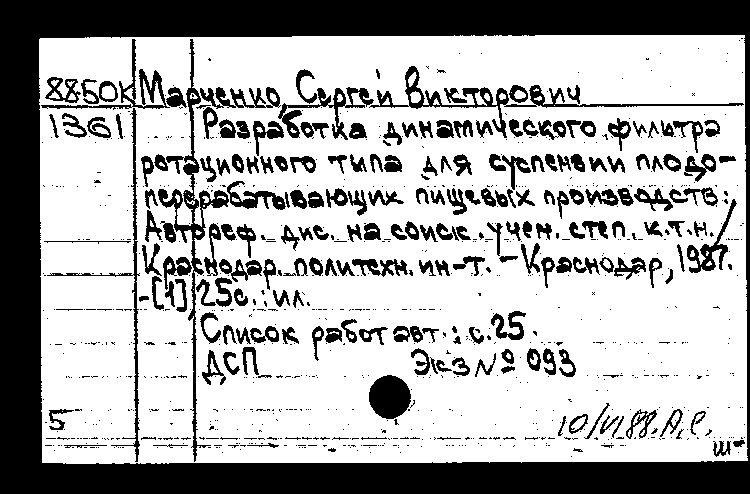 8850К Марченко, Сергей Викторович
1361 Разработка динамического фильтра
ротационного типа для суспензии плодо-
перерабатывающих пищевых производств:
Автореф. дис. на соиск. учен. степ. к.т.н./
Краснодар. политехн. ин-т. - Краснодар, 1987.
-[1], 25с.: ил.
Список работ авт.: с.25.
ДСП Экз № 093
5 10/VI 88. А.С.
ш-